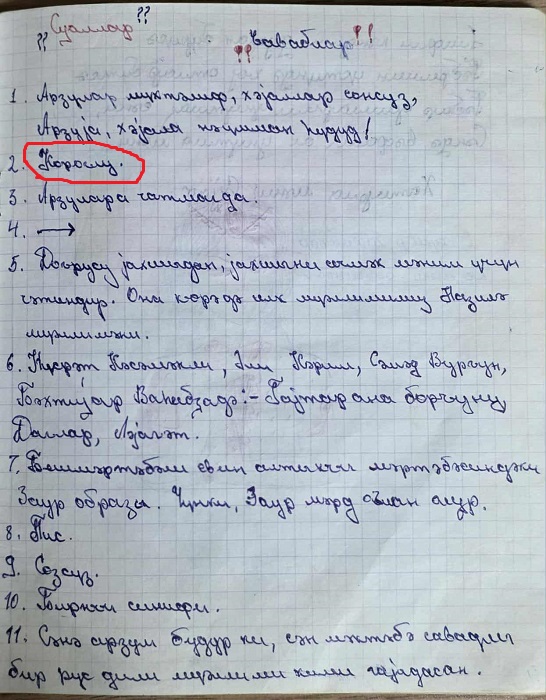 ⁇ Суаллар ⁇
‼ Ҹаваблар ‼
1. Арзулар мүхтәлиф, хәјаллар сонсуз,
Арзуја, хәјала нә һудуд!
2. Короғлу.
3. Арзулара чатмагда.
4. →
5. Доғрусу јахшыдан, јахшыны сечмәк мәним үчүн
чәтиндир. Она ҝөрәдә илк мүәллимимиз Назилә
мүәллимәни.
6. Нүсрәт Кәсәмәнли, Әли Кәрим, Сәмәд Вурғун,
Бәхтијар Ваһабзадә:- Гајтар ана борҹуну,
Дағлар, Ләјагәт.
7. Бешмәртәбәли евин алтынҹы мәртәбәсиндәки
Заур образы. Чүнки, Заур мәрд оғлан олур.
8. Пис.
9. Сәссиз.
10. Биринҹи синифи.
11. Сәнә арзум будур ки, сән мәктәбә савадлы
бир рус дили мүәллими кими гајыдасан.